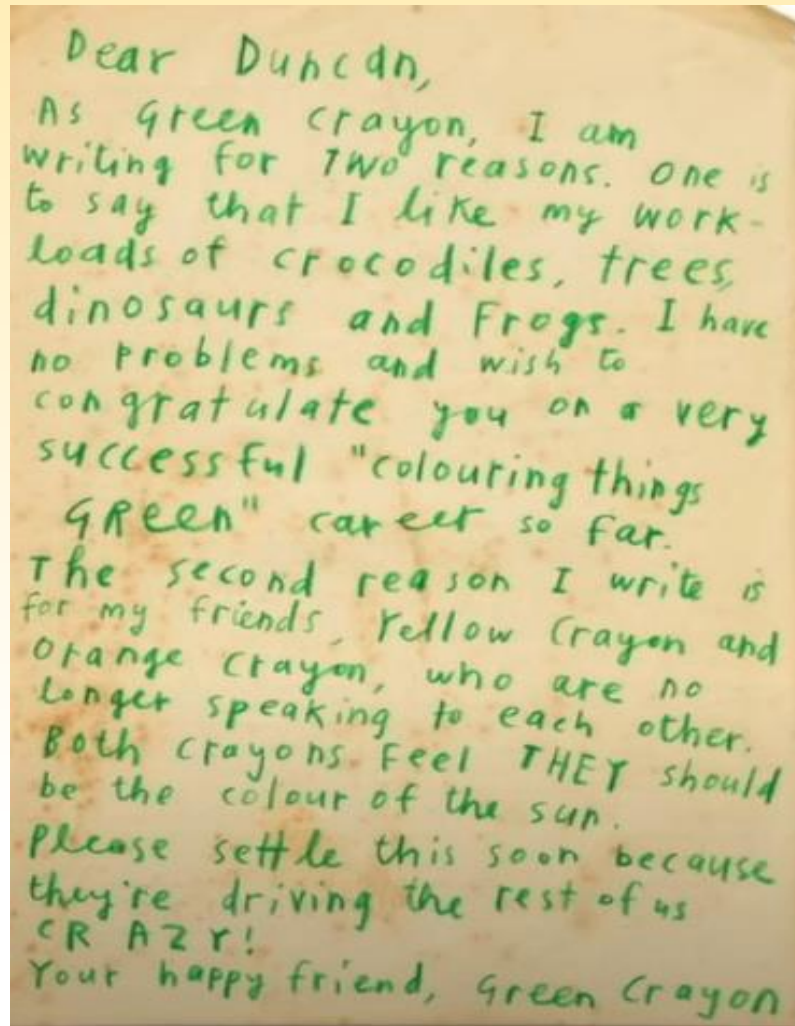 Dear Duncan,
As Green Crayon, I am
writing for TWO reasons. One is
to say that I like my work-
loads of crocodiles, trees,
dinosaurs and frogs. I have
no problems and wish to
congratulate you on a very
successful "colouring things
GReen" career so far.
The second reason I write is
for my friends, Yellow Crayon and
Orange Crayon, who are no
longer speaking to each other.
Both crayons feel THEY should
be the colour of the sun.
please settle this soon because
they're driving the rest of us
CRAZY!
Your happy friend, Green Crayon